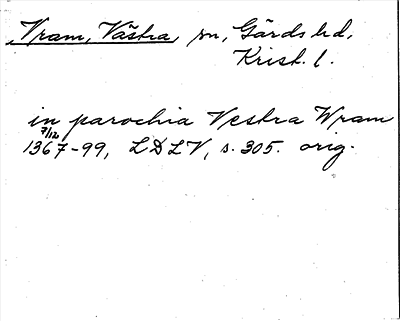 Vram, Västra, sn, Gärds hd,
Krist. l.
in parochia Vestra Wram
7/12 1367-99, LDLV, s. 305. orig.